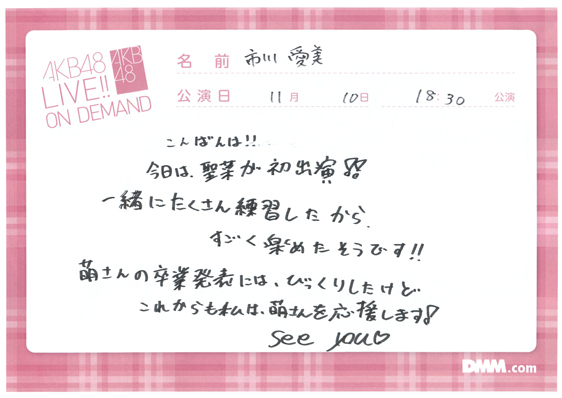 AKB48
LIVE!!
ON DEMAND
AKB
48
名 前 市川 愛美
公演日 11月 10日 18:30 公演
こんばんは!!
今日は、聖菜が初出演!!
一緒にたくさん練習したから、
すごく楽めたそうです!!
萌さんの卒業発表には、びっくりしたけど
これからも私は、萌さんを応援します!
see you♡
DMM.com